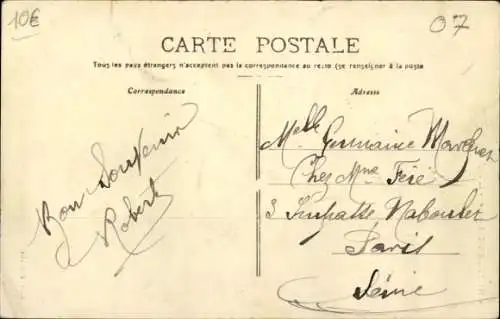 10€
07
CARTE POSTALE
Tous les pays étrangers n'acceptent pas la correspondance au recto (se renseigner à la poste
Correspondance
Adresse
Bon Souvenir
Robert
Melle Germaine
Chez Mme Féré
3
Paris
Seine